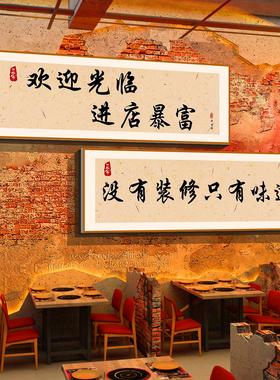 欢迎光临
进店暴富
没有装修只有味道